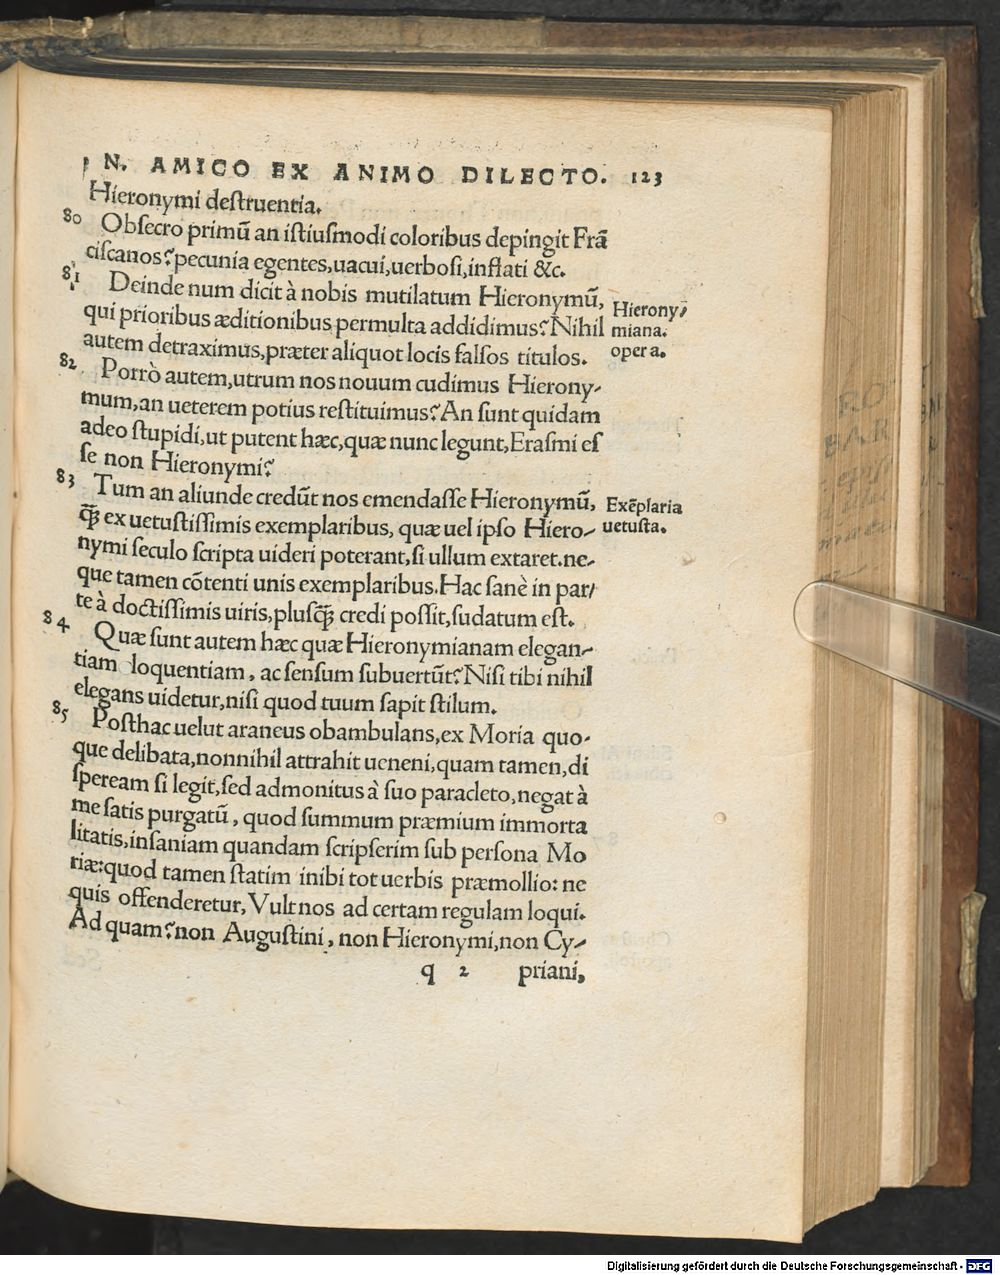 N. AMICO EX ANIMO DILECTO. 123
Hieronymi deſtruentia.
80 Obſecro primū an iſtiuſmodi coloribus depingit Frā
ciſcanos? pecunia egentes, uacui, uerboſi, inflati &c.
81 Deinde num dicit à nobis mutilatum Hieronymū,
qui prioribus æditionibus permulta addidimus? Nihil
autem detraximus, præter aliquot locis falſos titulos.
Hierony/
miana.
opera.
82 Porrò autem, utrum nos nouum cudimus Hierony-
mum, an ueterem potius reſtituimus? An ſunt quidam
adeo ſtupidi, ut putent hæc, quæ nunc legunt, Eraſmi eſ
ſe non Hieronymi?
83 Tum an aliunde credūt nos emendaſſe Hieronymū,
q̃ʒ ex uetuſtiſſimis exemplaribus, quæ uel ipſo Hiero-
nymi ſeculo ſcripta uideri poterant, ſi ullum extaret. ne-
que tamen cōtenti unis exemplaribus. Hac ſanè in par/
te à doctiſſimis uiris, pluſq̃ʒ credi poſſit, ſudatum eſt.
Exēplaria
uetuſta.
84 Quæ ſunt autem hæc quæ Hieronymianam elegan-
tiam loquentiam, ac ſenſum ſubuertūt? Niſi tibi nihil
elegans uidetur, niſi quod tuum ſapit ſtilum.
85 Poſthac uelut araneus obambulans, ex Moria quo-
que delibata, nonnihil attrahit ueneni, quam tamen, di
ſpeream ſi legit, ſed admonitus à ſuo paracleto, negat à
me ſatis purgatū, quod ſummum præmium immorta
litatis, inſaniam quandam ſcripſerim ſub perſona Mo
riæ: quod tamen ſtatim inibi tot uerbis præmollio: ne
quis offenderetur, Vult nos ad certam regulam loqui.
Ad quam? non Auguſtini, non Hieronymi, non Cy-
q 2 priani,
Digitalisierung gefördert durch die Deutsche Forschungsgemeinschaft - DFG